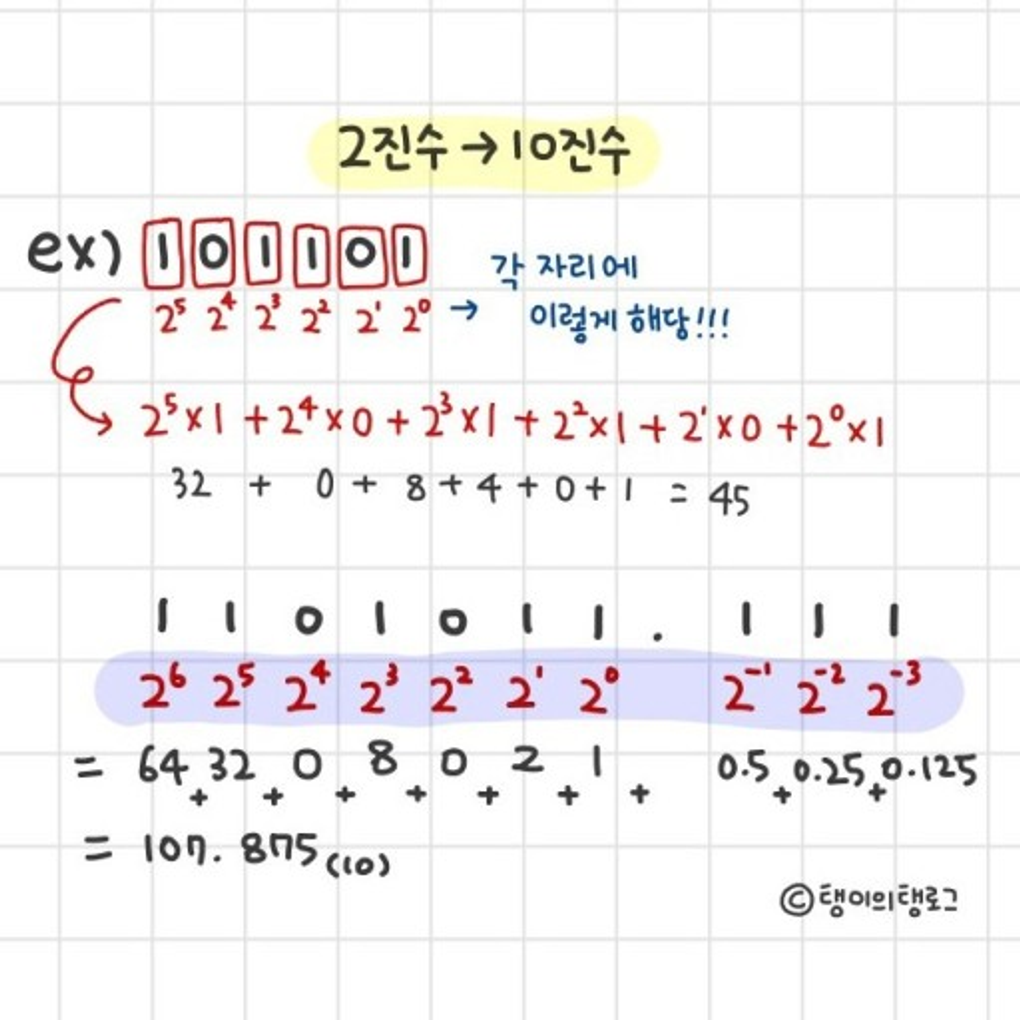 2진수 → 10진수
ex) 1 0 1 1 0 1
2⁵ 2⁴ 2³ 2² 2¹ 2⁰ → 각 자리에
이렇게 해당!!!
2⁵×1 + 2⁴×0 + 2³×1 + 2²×1 + 2¹×0 + 2⁰×1
32 + 0 + 8 + 4 + 0 + 1 = 45
1 1 0 1 0 1 1 . 1 1 1
2⁶ 2⁵ 2⁴ 2³ 2² 2¹ 2⁰ 2⁻¹ 2⁻² 2⁻³
= 64 + 32 + 0 + 8 + 0 + 2 + 1 + 0.5 + 0.25 + 0.125
= 107.875₍₁₀₎
©탱이의탱로그